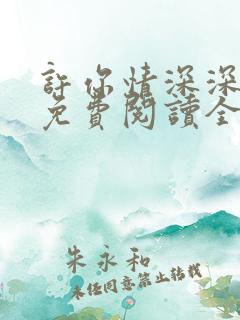 許你情深深
免費閱讀全
朱永和
未經同意禁止轉載